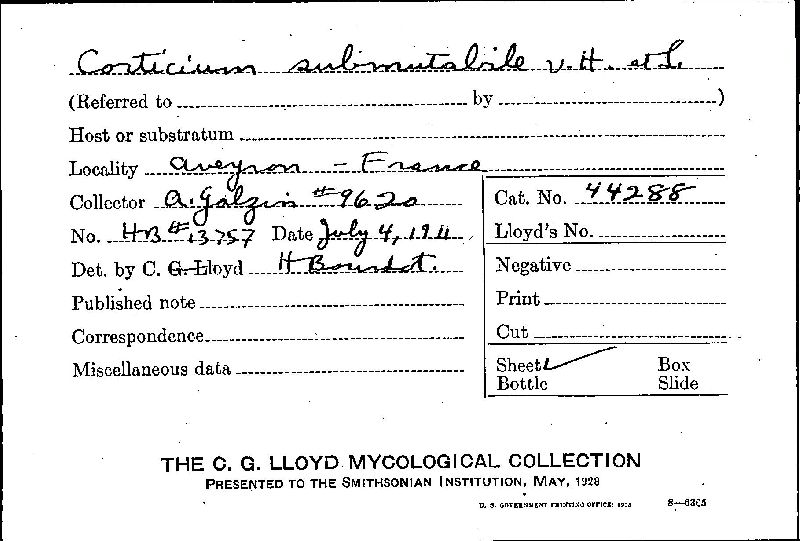 Corticium submutabile v. H. et L.
(Referred to by )
Host or substratum
Locality Aveyron - France
Collector A. Galzin #9620
No. HB #13757 Date July 4, 1911
Det. by C. G. Lloyd H Bourdot.
Published note
Correspondence
Miscellaneous data
Cat. No. 44288
Lloyd's No.
Negative
Print
Cut
Sheet Box
Bottle Slide
THE C. G. LLOYD MYCOLOGICAL COLLECTION
PRESENTED TO THE SMITHSONIAN INSTITUTION, MAY, 1928
U. S. GOVERNMENT PRINTING OFFICE: 8—6305